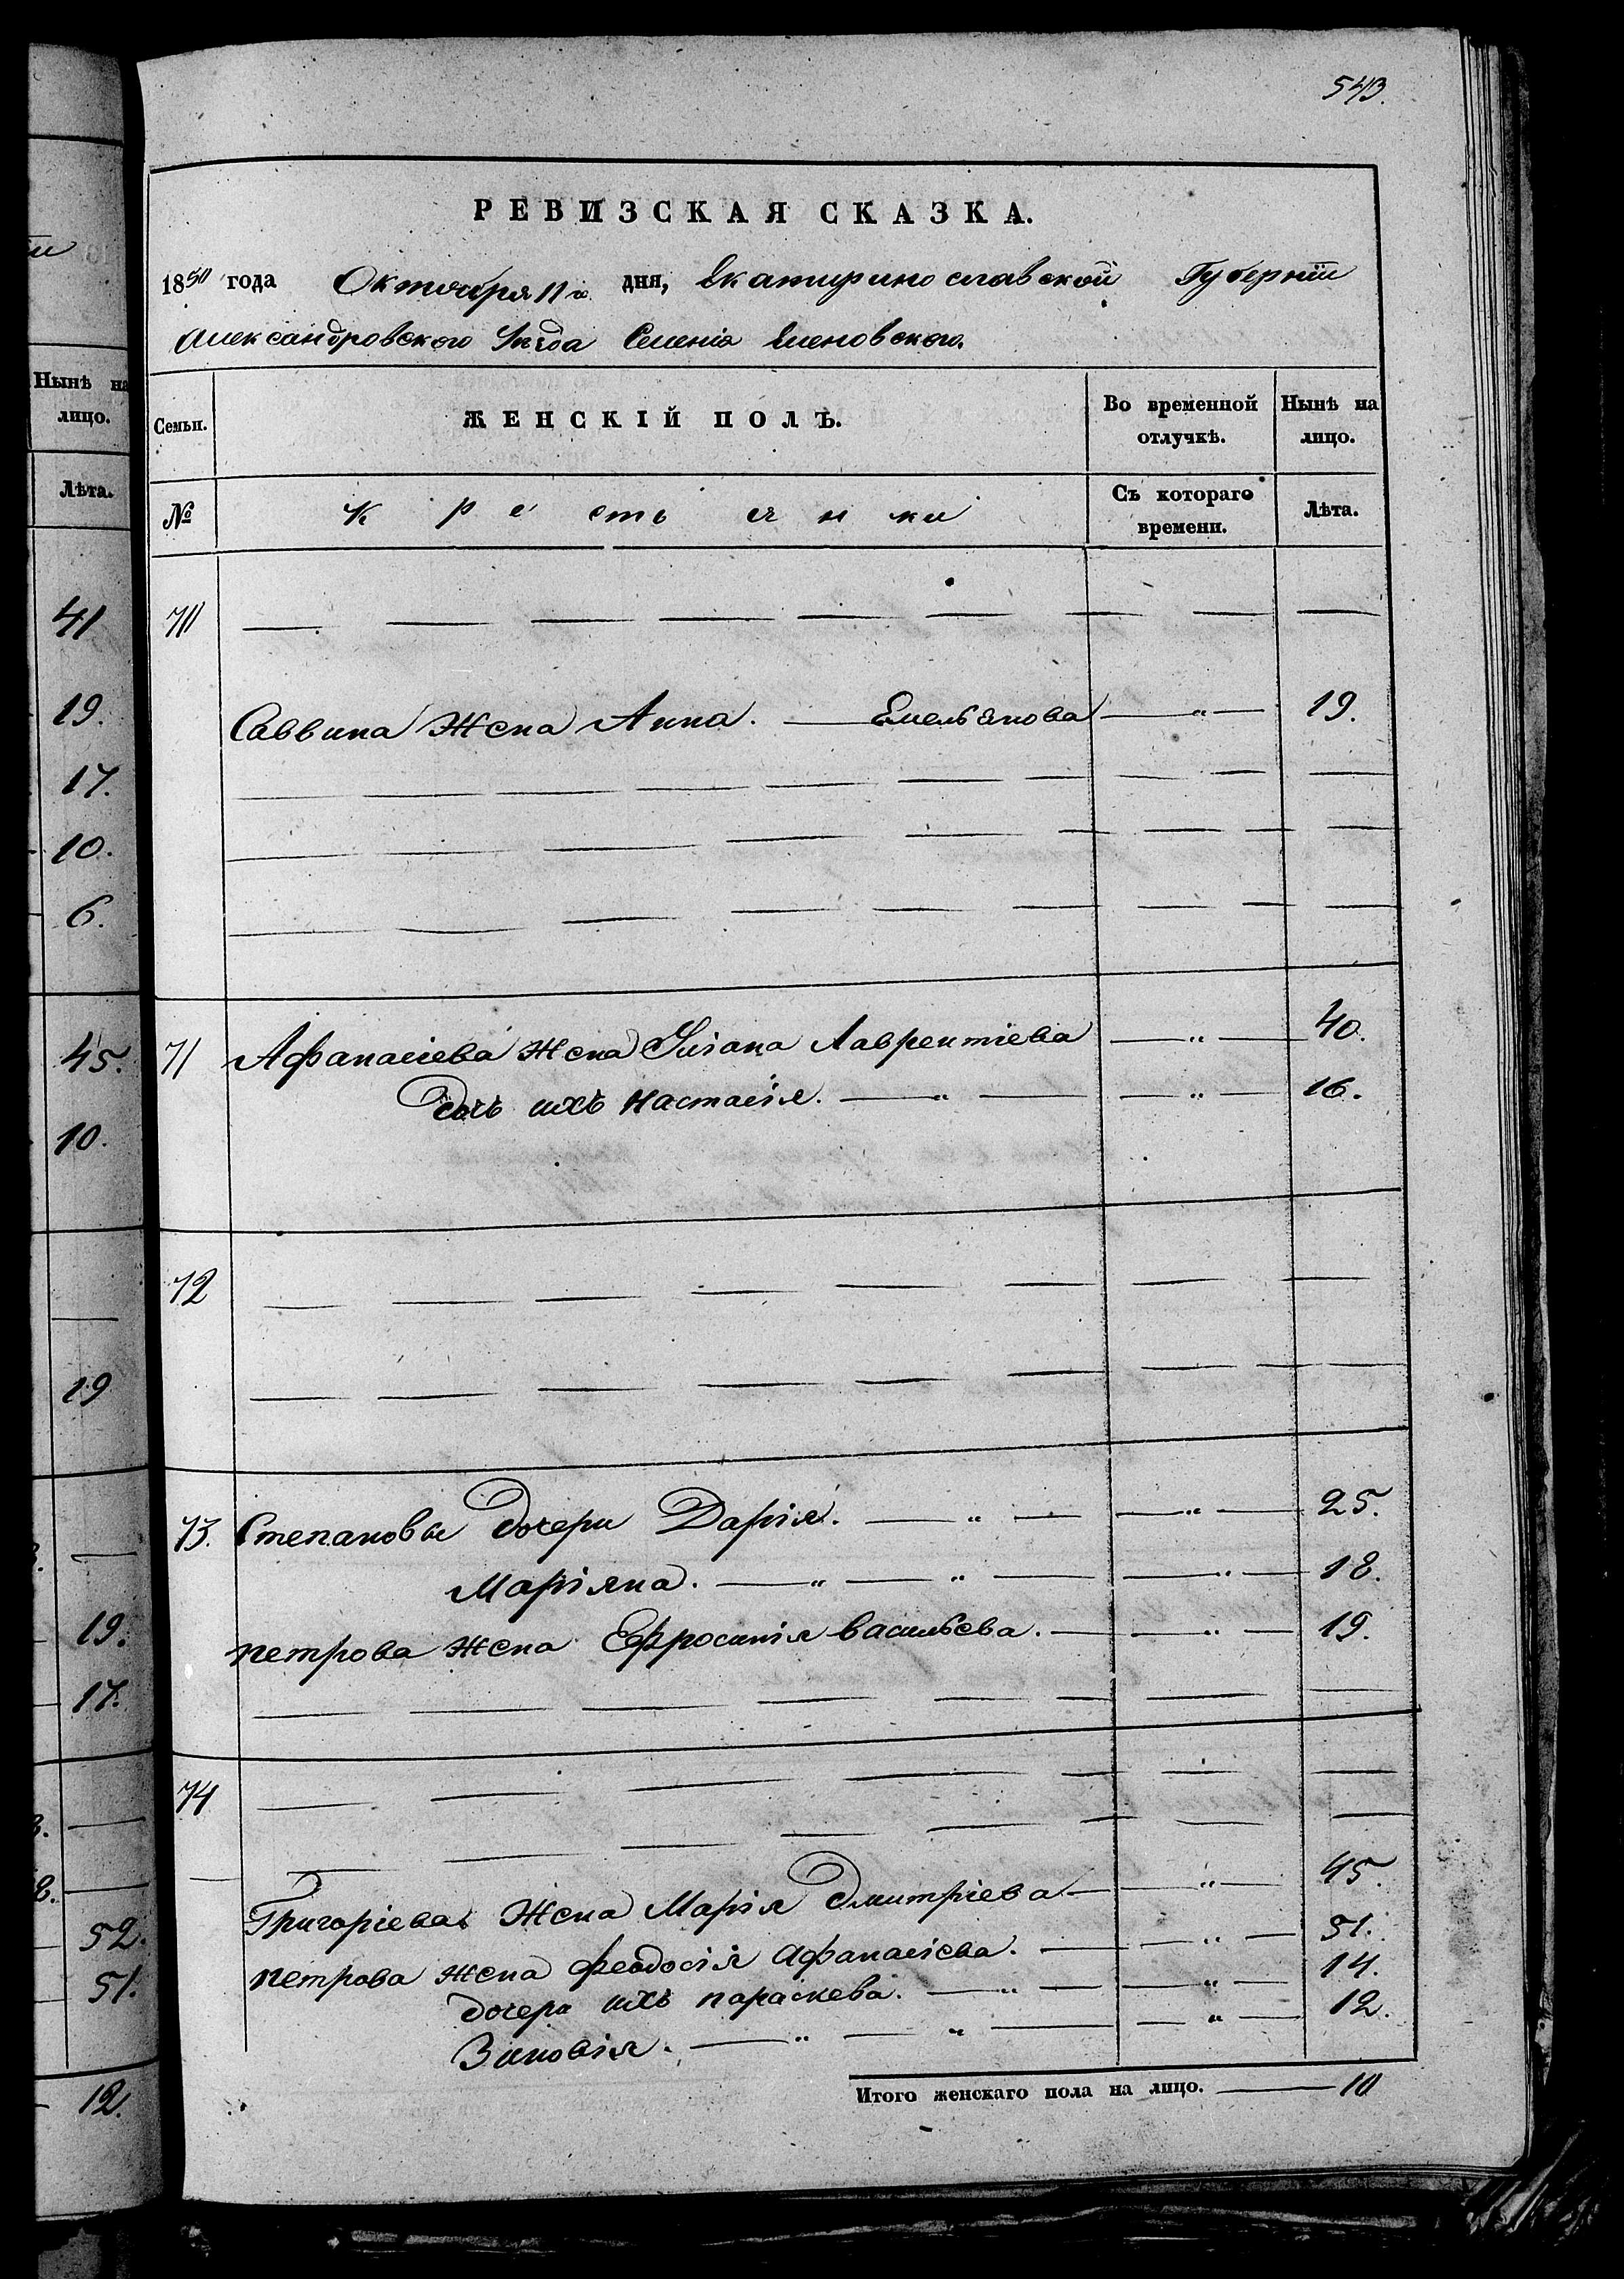 543.
РЕВИЗСКАЯ СКАЗКА.
1850 года Октября 11го дня, Екатеринославской Губерніи
Александровского Уезда Селенія Еленовского.
Семьи. ЖЕНСКІЙ ПОЛЪ. Во временной отлучкѣ. Нынѣ на лицо.
№ Крестьянки Съ котораго времени. Лѣта.
Саввина Жена Анна. Емельянова " 19.
71 Афанасіева Жена Лаврентіева " 40.
дочь ихъ Настасія. " " 16.
72
73. Степановы дочери Дарія. " " 25.
Маріяна. " " " 18.
петрова Жена Ефросинія васильева. " 19.
74
Григоріева Жена Марія Дмитріева " 45.
петрова Жена феодосія Афанасіева. " 51.
дочери ихъ параскева. " " 14.
Зиновія. " " " 12.
Итого женскаго пола на лицо. 10
Нынѣ на
лицо.
Лѣта.
41
19.
17.
10.
6.
45.
10.
19
19.
17.
52.
51.
12.